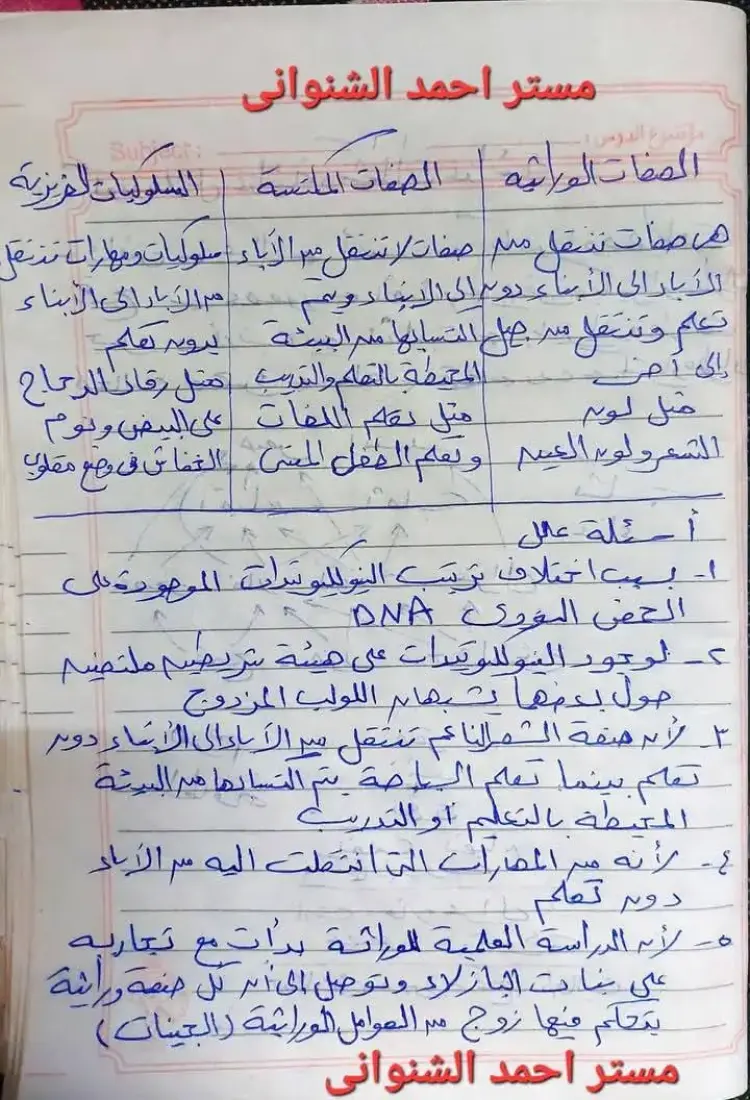 مستر احمد الشنوانى
Subject:
موضوع الدرس:
الصفات الوراثيه | الصفات المكتسبة | السلوكيات الغريزية
هى صفات تنتقل من | صفات لا تنتقل من الأباء | سلوكيات ومهارات تنتقل
الأباء الى الأبناء دون | الى الأبناء ويتم | من الأباء الى الأبناء
تعلم وتنتقل من جيل | اكتسابها من البيئة | بدون تعلم
إلى أخر | المحيطة بالتعلم والتدريب | مثل رقاد الدجاج
مثل لون | مثل تعلم اللغات | على البيض ونوم
الشعر ولون العين | وتعلم الطفل المشى | الخفاش فى وضع مقلوب
أسئلة علل
١- بسبب اختلاف ترتيب النيوكليوتيدات الموجودة على
الحمض النووى DNA
٢- لوجود النيوكليوتيدات على هيئة شريطين ملتفين
حول بعضها يشبهان اللولب المزدوج
٣- لأن صفة الشعر الناعم تنتقل من الأباء الى الأبناء دون
تعلم بينما تعلم السباحة يتم اكتسابها من البيئة
المحيطة بالتعليم أو التدريب
٤- لأنه من المهارات التى انتقلت اليه من الأباء
دون تعلم
٥- لأن الدراسة العلمية للوراثة بدأت مع تجاربه
على نبات البازلاء وتوصل إلى أن كل صفة وراثية
يتحكم فيها زوج من العوامل الوراثية (الجينات)
مستر احمد الشنوانى